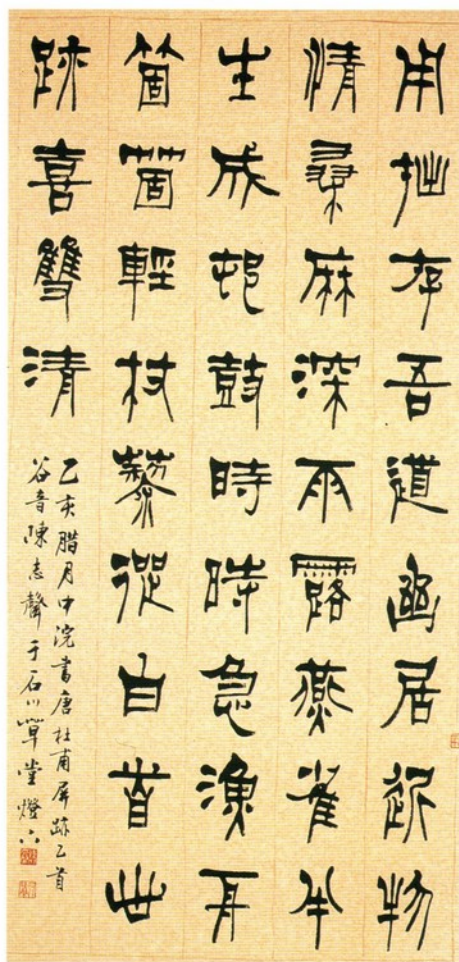 用拙存吾道幽居近物
情桑麻深雨露燕雀半
生成邨鼓時時急漁舟
箇箇輕杖藜從白首世
跡喜雙清
乙亥腊月中浣書唐杜甫屏跡乙首
谷音陳志聲于石川草堂燈下